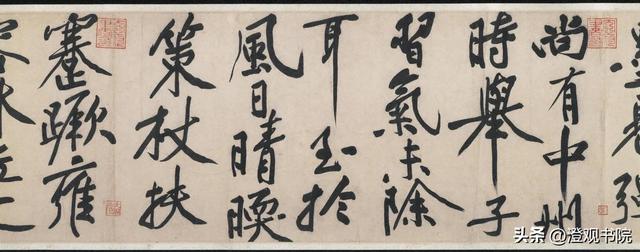 尚有中州
時舉子
習氣未除
耳至於
風日晴暖
策杖扶
蹇蹶雍
头条 @澄观书院